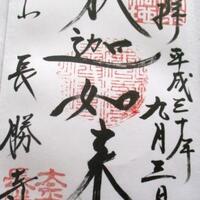 奉拝
平成三十年九月三日
釈迦如来
長勝寺